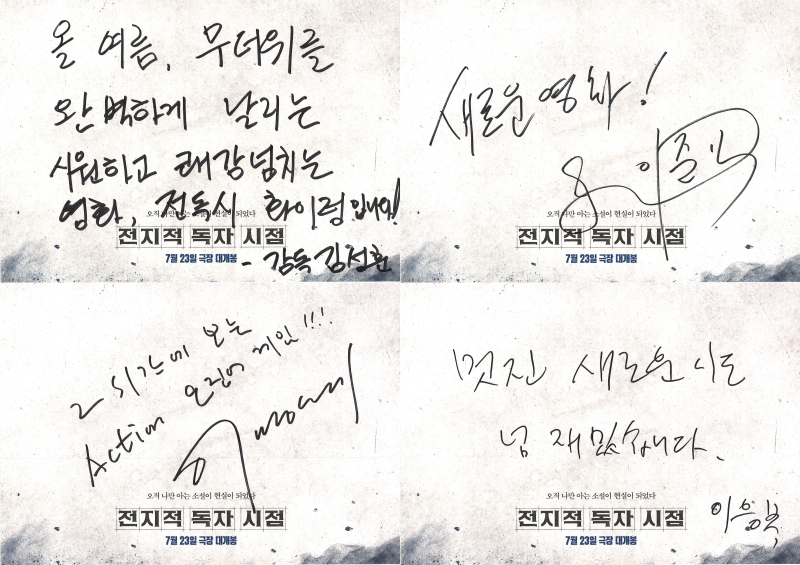 올 여름, 무더위를
완벽하게 날리는
시원하고 쾌감넘치는
영화, 전독시 화이링입니다!
오직 나만 아는 소설이 현실이 되었다
전지적 독자 시점
7월 23일 극장 대개봉
- 감독 김선훈
새로운 영화!
이준익
오직 나만 아는 소설이 현실이 되었다
전지적 독자 시점
7월 23일 극장 대개봉
2시간에 보는
Action 오징어 게임!!!
오직 나만 아는 소설이 현실이 되었다
전지적 독자 시점
7월 23일 극장 대개봉
멋진 새로운 시도
넘 재밌습니다.
오직 나만 아는 소설이 현실이 되었다
전지적 독자 시점
7월 23일 극장 대개봉
이응복